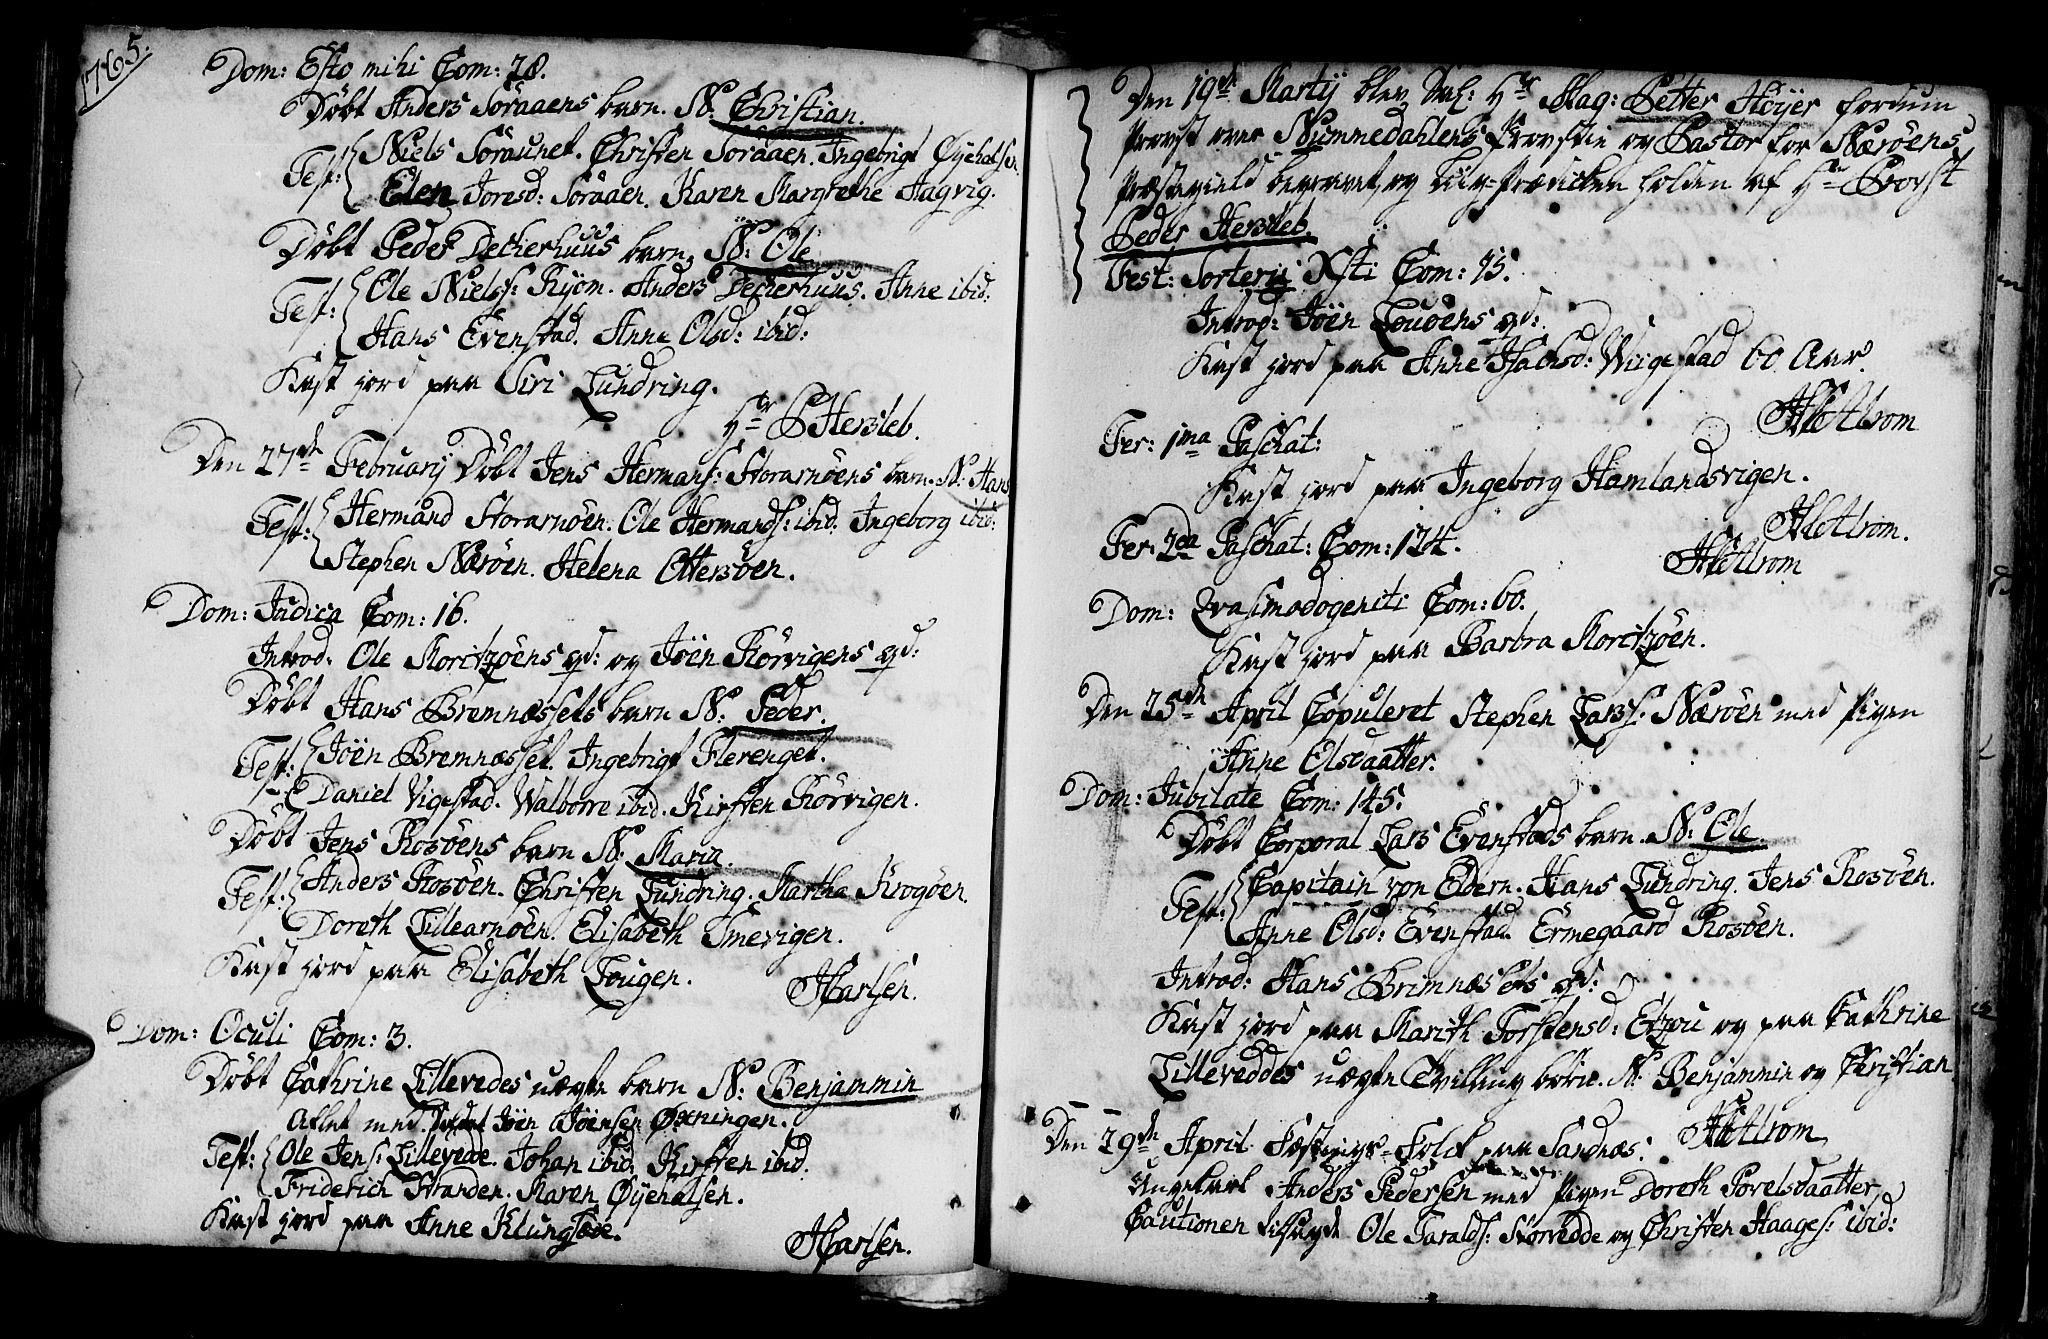 1765.
Dom: Esto mihi Com: 28.
Døbt Anders Søraaens barn. N: Christian.
Test: Niels Søraunet. Christen Søraaen. Ingebrigt Øyehalsen
Elen Joresd: Søraaen. Karen Margrethe Hagvig.
Døbt Peder Decherhuus barn. N: Ole
Test: Ole Niels: Ryom. Anders Decherhuus. Anne ibid:
Hans Evenstad. Anne Olsd: ibid:
Kast jord paa Siri Lundring.
Hr P Hersleb.
Den 27de February Døbt Jens Hermans: Storarnøens barn. N: Hans
Test: Hermand Storarnøen. Ole Hermands: ibid. Ingeborg ibid:
Stephen Nærøen. Helena Ottersøen.
Dom: Judica Com: 16.
Introd: Ole Moritzøens qd: og Jøen Rørvigens qd:
Døbt Hans Bremnæssets barn N: Peder.
Test: Jøen Bremnæsset. Ingebrigt Flerenget.
Daniel Vigestad. Walborre ibid. Kirsten Rørvigen.
Døbt Jens Rosøens barn N: Maria.
Test: Anders Rosøen. Christen Lundring. Martha Krogøen.
Doreth Lillearnøen. Elisabeth Smevigen.
Kast jord paa Elisabeth Lougen.
HCarlsen.
Dom: Oculi Com: 3.
Døbt Cathrine Lillevedes uægte barn N: Benjammin
Aflet med Jøen Jøensen Øxningen.
Test: Ole Jens: Lillevedde. Johan ibid: Kirsten ibid.
Friderich Stranden. Maren Øyehalsen.
Kast jord paa Anne Klungsøe.
HCarlsen.
Den 19de Martij blev Sal: Hr Mag: Petter Høyer fordum
Provst over Nummedahlens Provstie og Pastor for Nærøens
Præstegield begravet, og Liig-Prædiken holden af Hr Provst
Peder Hersleb.
Fest: Torterii Xsti Com: 95.
Introd: Jøen Louøens qd:
Kast jord paa Anne Isachsd: Wiigestad 60 Aar.
Fer: 1ma Paschat:
Kast jord paa Ingeborg Hamlandsvigen.
Fer: 2da Paschat: Com: 124.
Dom: Qvasimodogeniti Com: 60.
Kast jord paa Barbra Moritzøen.
Den 25de April Copuleret Stephen Lars: Nærøen med Pigen
Anne Olsdaatter.
Dom: Jubilate Com: 145.
Døbt Corporal Lars Evenstads barn. N: Ole.
Test: Capitain von Eldern. Hans Lundring. Jens Rosøen.
Anne Olsd: Evenstad. Ermegaard Rosøen.
Introd: Hans Brimnæssets qd:
Kast jord paa Marith Torstensd: og paa Cathrine
Lilleveddes uægte Tvilling børn. N: Benjamin og Christian
Den 29de April Fæstnings-Folck paa Sandnæs:
Ungekarl Anders Pedersen med Pigen Doreth Povelsdaatter
Cautionen tilsagde Ole Taralds: Storvedde og Christen Haages: ibid: